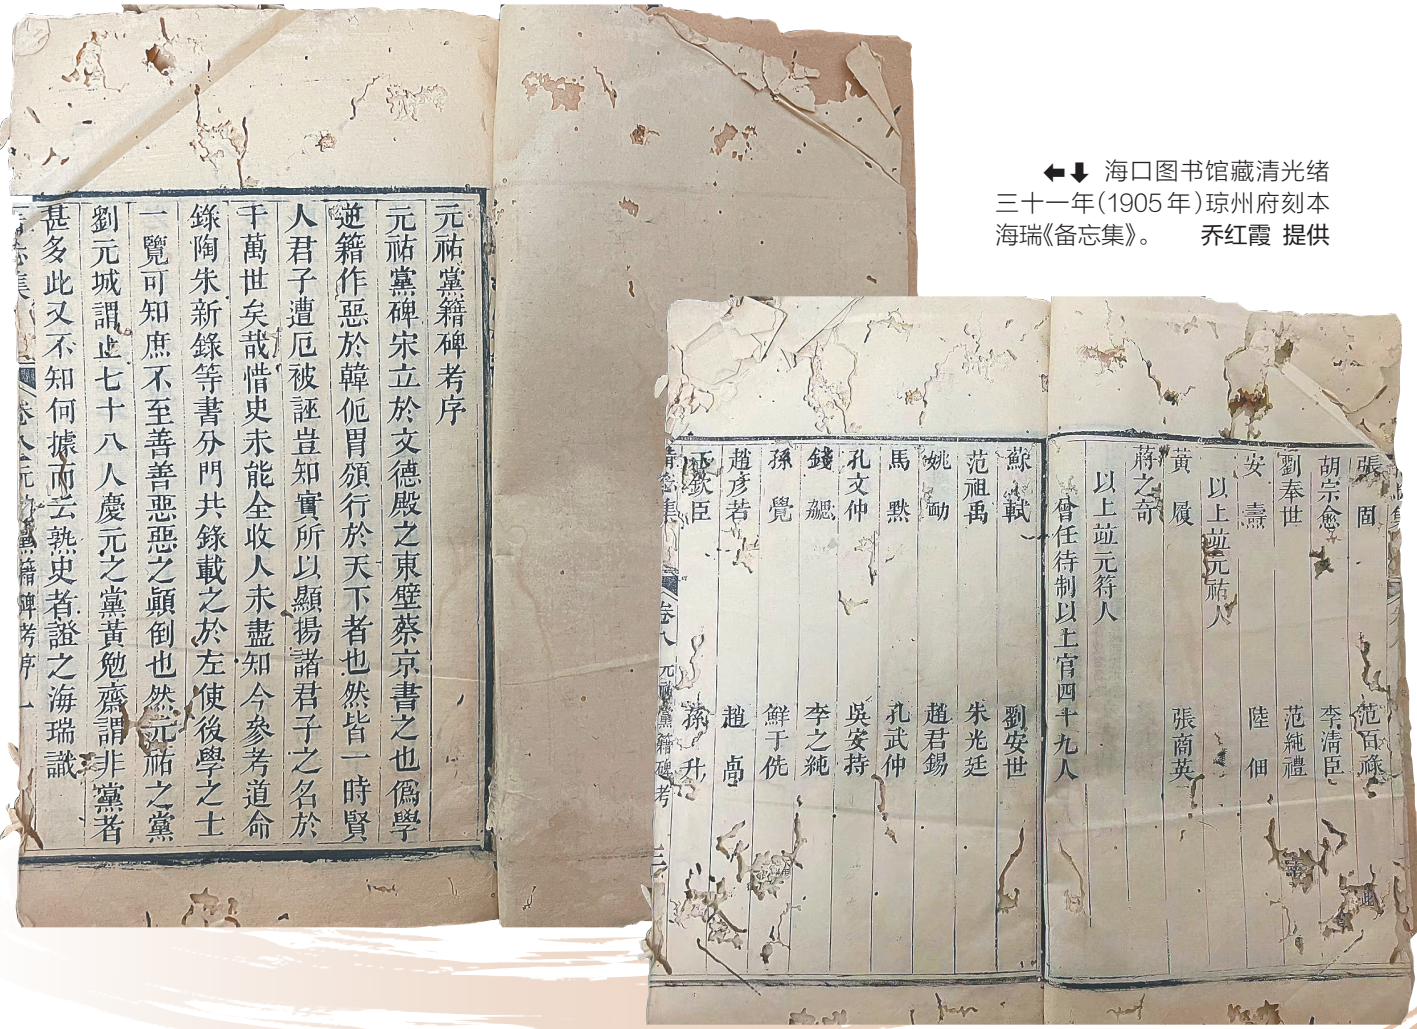 海口图书馆藏清光绪
三十一年（1905年）琼州府刻本
海瑞《备忘集》。 乔红霞 提供
元祐黨籍碑考序
元祐黨碑宋立於文德殿之東壁蔡京書之也僞學
逆籍作惡於韓侂胄頒行於天下者也然皆一時賢
人君子遭厄被誣豈知實所以顯揚諸君子之名於
千萬世矣哉惜史未能全收人未盡知今參考道命
錄陶朱新錄等書分門共錄載之於左使後學之士
一覽可知庶不至善善惡惡之顚倒也然元祐之黨
劉元城謂止七十八人慶元之黨黃勉齋謂非黨者
甚多此又不知何據而云熟史者證之海瑞識
忘集 卷八 元祐黨籍碑考序 一
張固 范百祿
胡宗愈 李清臣
劉奉世 范純禮
安燾 陸佃
以上並元祐人
黃履 張商英
蔣之奇
以上並元符人
曾任待制以上官四十九人
蘇軾 劉安世
范祖禹 朱光廷
姚勔 趙君錫
馬默 孔武仲
孔文仲 吳安持
錢勰 李之純
孫覺 鮮于侁
趙彥若 趙卨
王欽臣 孫升
備忘集 卷八 元祐黨籍碑考 三